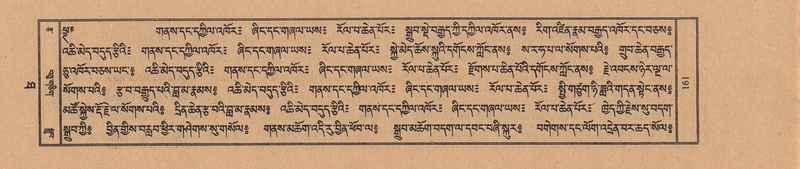 ༄༅། གནས་དང་དཀྱིལ་འཁོར༔ ཞིང་དང་གཞལ་ཡས༔ རོལ་པ་ཆེན་པོར༔ སྒྲུབ་སྡེ་བརྒྱད་ཀྱི་དཀྱིལ་འཁོར་ནས༔ རིག་འཛིན་རྣམ་བརྒྱད་འཁོར་དང་བཅས༔
འཆི་མེད་བདུད་རྩིའི༔ གནས་དང་དཀྱིལ་འཁོར༔ ཞིང་དང་གཞལ་ཡས༔ རོལ་པ་ཆེན་པོར༔ སྐྱེ་མེད་ཆོས་སྐུའི་དགོངས་ཀློང་ནས༔ ས་ར་ཧ་པ་ལ་སོགས་པའི༔ གྲུབ་ཆེན་བརྒྱད་
ཅུ་འཁོར་བཅས་ཡང༔ འཆི་མེད་བདུད་རྩིའི༔ གནས་དང་དཀྱིལ་འཁོར༔ ཞིང་དང་གཞལ་ཡས༔ རོལ་པ་ཆེན་པོར༔ རྫོགས་པ་ཆེན་པོའི་དགོངས་ཀློང་ནས༔ རྗེ་འབངས་ཉེར་ལྔ་ལ་
སོགས་པའི༔ རྩ་བ་བརྒྱུད་པའི་བླ་མ་རྣམས༔ འཆི་མེད་བདུད་རྩིའི༔ གནས་དང་དཀྱིལ་འཁོར༔ ཞིང་དང་གཞལ་ཡས༔ རོལ་པ་ཆེན་པོར༔ སྤྱི་གཙུག་ཉི་ཟླའི་གདན་སྟེང་ནས༔
མཚོ་སྐྱེས་རྡོ་རྗེ་ལ་སོགས་པའི༔ དྲིན་ཆེན་རྩ་བའི་བླ་མ་རྣམས༔ འཆི་མེད་བདུད་རྩིའི༔ གནས་དང་དཀྱིལ་འཁོར༔ ཞིང་དང་གཞལ་ཡས༔ རོལ་པ་ཆེན་པོར༔ ཁྱེད་ཀྱི་རྗེས་སུ་བདག་
སྒྲུབ་ཀྱི༔ བྱིན་གྱིས་བརླབ་ཕྱིར་གཤེགས་སུ་གསོལ༔ གནས་མཆོག་འདི་རུ་བྱིན་ཕོབ་ལ༔ སྒྲུབ་མཆོག་བདག་ལ་དབང་བཞི་སྐུར༔ བགེགས་དང་ལོག་འདྲེན་བར་ཆད་སོལ༔
191